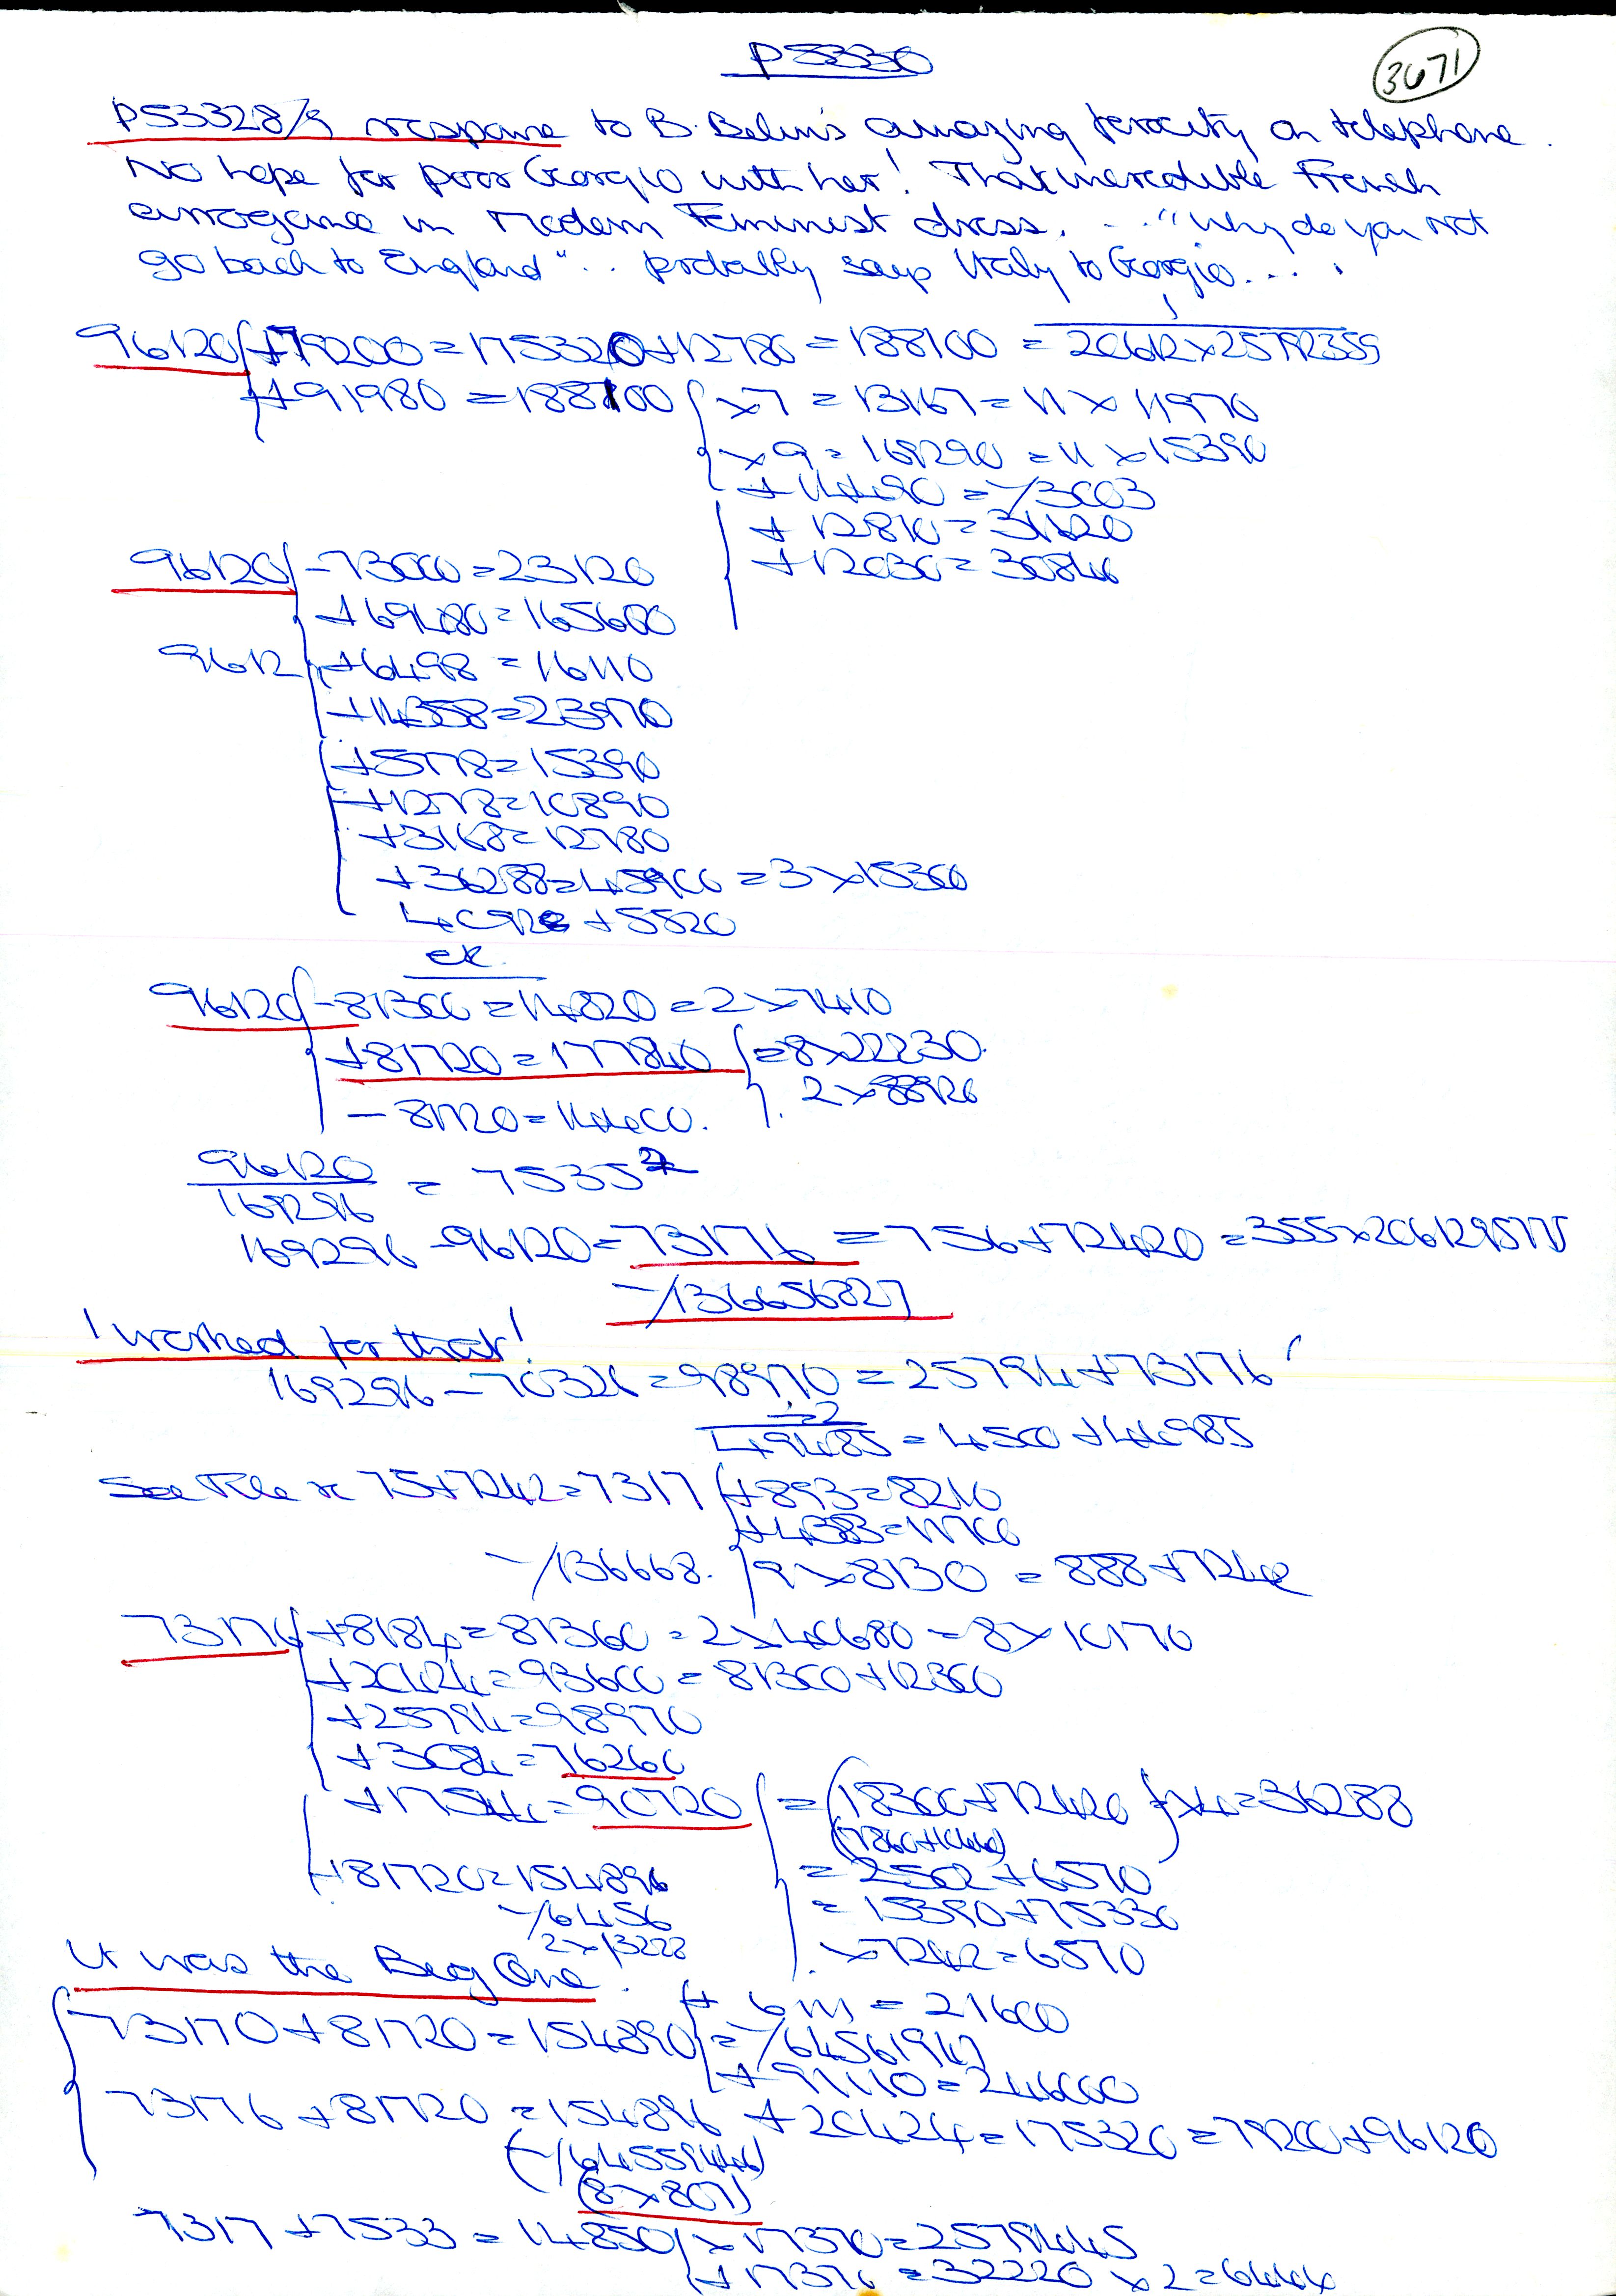 P5330
3671
P53328/9 response to B. Belin's amazing ferocity on telephone.
No hope for poor Georgio with her! That incredible French
arrogance in Modern Feminist dress. . . "Why do you not
go back to England" . . probably says Italy to Georgio. . . .
96120 +79200 = 175320 + 12780 = 188100 =
+91980 = 188100 x 7 = 13167 = 11 x 11970
x 9 = 169290 = 11 x 15390
+ 12810 = 31120
+ 12030 = 30846
96120 -73000 = 23120
+69480 = 165600
9612 +6498 = 16110
+14358 = 23970
+5778 = 15390
+1278 = 10890
+3168 = 12780
+36288 = 45900 = 3 x 15300
+5520
etc.
96120 -81300 = 14820 = 2 x 7410
+81720 = 177840 = 8 x 22230
2 x 88920
-81720 = 14400.
96120
169296
169296 - 96120 = 73176 = 756 + 72420 = 355 x 206129577
-/136656827
I worked for that!
169296 - 70326 = 98970 = 25794 + 73176
÷2
49485 = 4500 + 44985
75 + 7242 = 7317 +893 = 8210
+4383 = 11700
-/136668. 9 x 8130 = 888 + 7242
73176 +8184 = 81360 = 2 x 40680 = 8 x 10170
+20424 = 93600 = 81300 + 12300
+25794 = 98970
+3084 = 76260
+17544 = 90720 = (18300 + 72420) x 4 = 36288
+81720 = 154896 = 2502 + 6570
-/6456 = 15390 + 75330
2 x 3228 x 7242 = 6570
It was the Beg One.
+ 6m = 21600
73170 + 81720 = 154890 = -/64561947
+ 91110 = 246000
73176 + 81720 = 154896 + 20424 = 175320 = 79200 + 96120
(-/64559446)
(8 x 807)
7317 + 7533 = 14850 x 17370 = 2579445
+ 17370 = 32220 x 2 = 6444